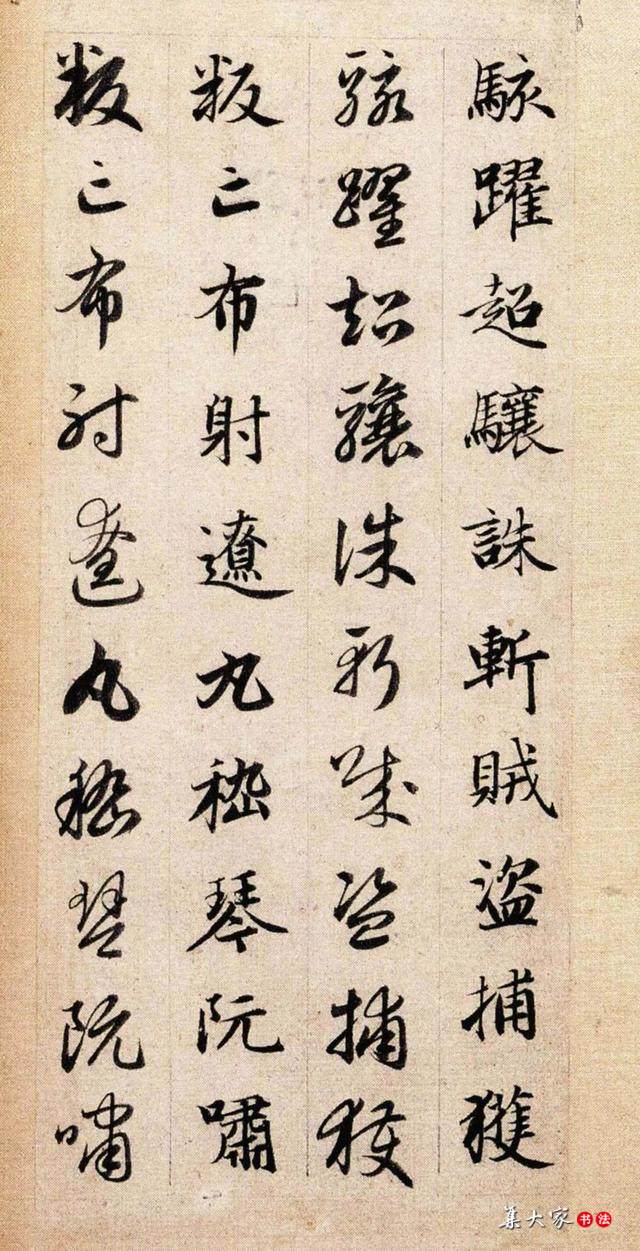 駭躍超驤誅斬賊盜捕獲
駭躍超驤誅斬賊盜捕獲
叛亡布射遼丸嵇琴阮嘯
叛亡布射遼丸嵇琴阮嘯
集大家书法